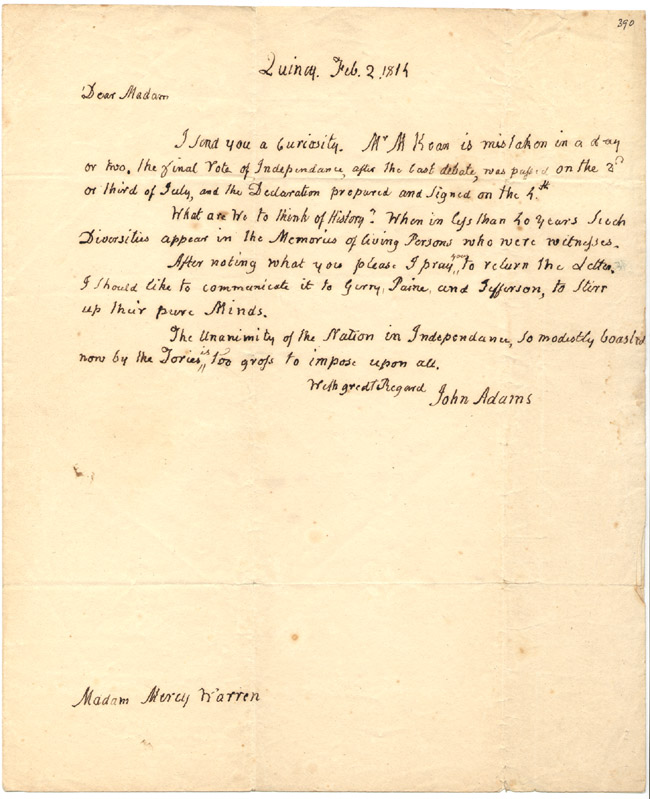 390
Quincy. Feb. 2. 1814
Dear Madam
I send you a Curiosity. Mr McKean is mistaken in a day
or two. the final Vote of Independance, after the last debate, was passed on the 2d
or third of July, and the Declaration prepared and signed on the 4.th
What are We to think of History? When in less than 40 years Such
Diversities appear in the Memories of living Persons who were witnesses.
After noting what you please I pray you to return the Letter.
I should like to communicate it to Gerry, Paine, and Jefferson, to Stirr
up their pure Minds.
The Unanimity of the Nation in Independance, so modestly boasted
now by the Tories is too gross to impose upon all.
With great Regard John Adams
Madam Mercy Warren